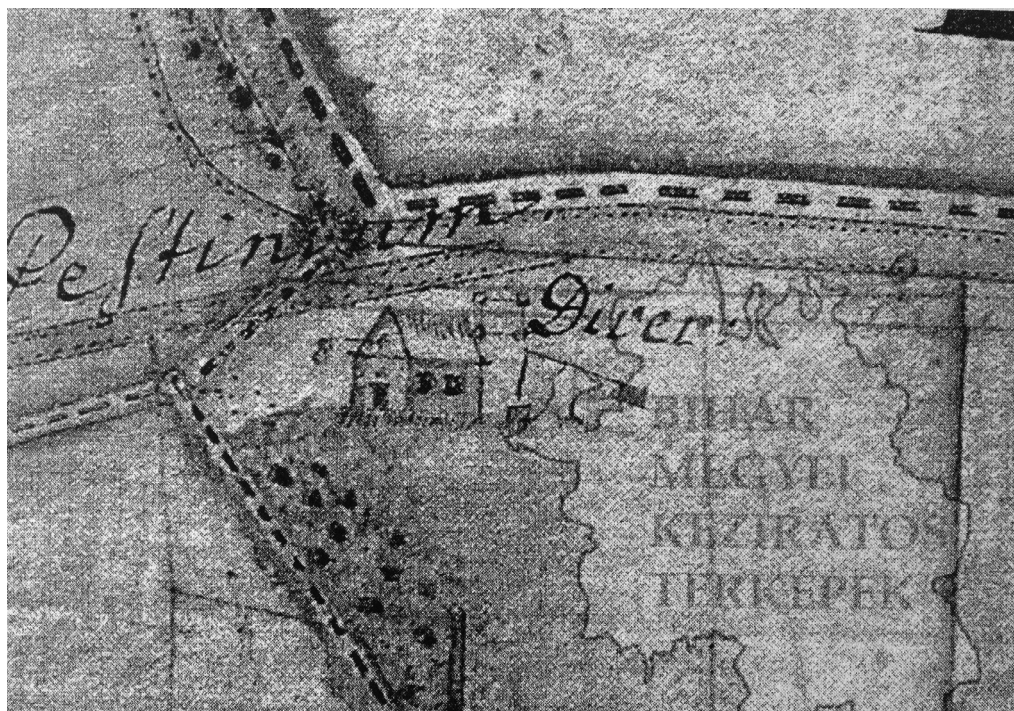 Diver:
BIHAR
MEGYEI
KÉZIRATOS
TÉRKÉPEK